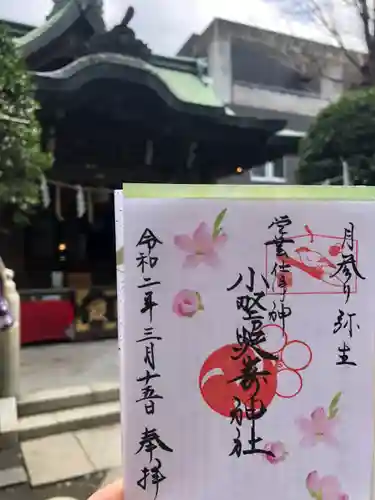 月参り 弥生
小野照崎神社
令和二年三月十五日 奉拝